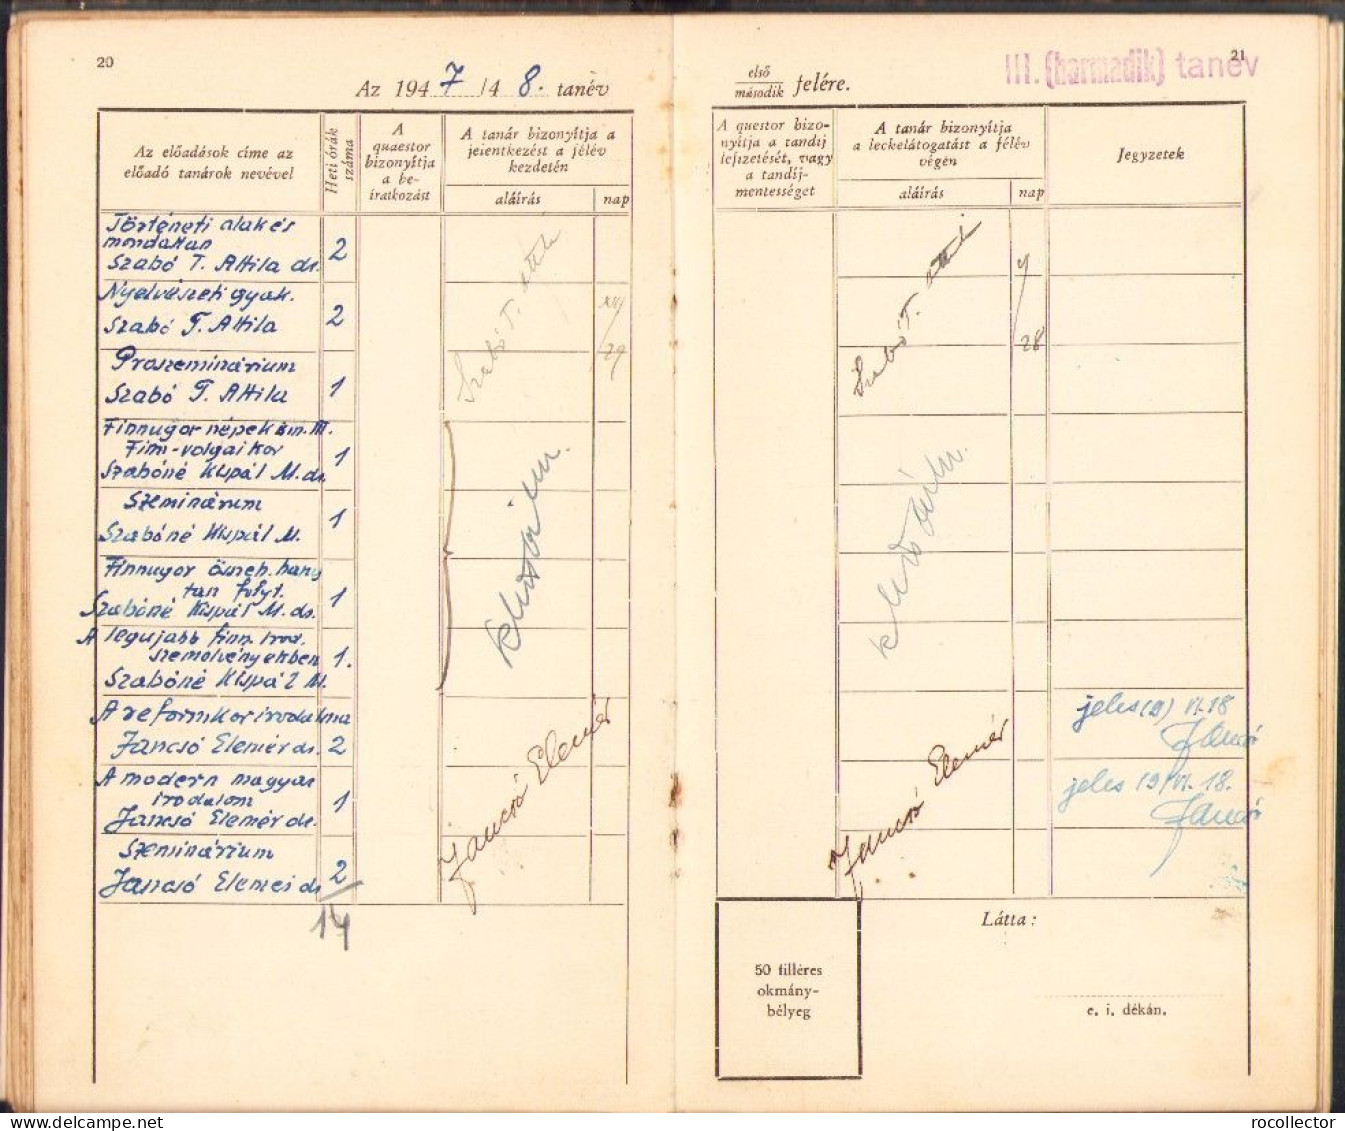 20
Az 1947/48. tanév
Az előadások címe az
előadó tanárok nevével
Heti órák
száma
A
quaestor
bizonyítja
a be-
íratkozást
A tanár bizonyítja a
jelentkezést a félév
kezdetén
aláírás
nap
Történeti alak és
mondattan
Szabó T. Attila dr.
2
Nyelvészeti gyak.
Szabó T. Attila
2
Proszeminárium
Szabó T. Attila
1
Szabó T. Attila
XII/29
Finnugor népek ism. III.
Finn-volgai kor
Szabóné Kispál M. dr.
1
Szeminárum
Szabóné Kispál M.
1
Finnugor össeh. hang
tan folyt.
Szabóné Kispál M. dr.
1
A legujabb finn irod.
szemelvényekben
Szabóné Kispál M.
1.
A reformkor irodalma
Jancsó Elemér dr.
2
A modern magyar
irodalom
Jancsó Elemér dr.
1
Szeminárium
Jancsó Elemér dr.
2
Jancsó Elemér
14
21
III. (harmadik) tanév
első
második felére.
A questor bizo-
nyítja a tandíj
lefizetését, vagy
a tandíj-
mentességet
A tanár bizonyítja
a leckelátogatást a félév
végén
aláírás
nap
Jegyzetek
Szabó T. Attila
28
Jancsó Elemér
jeles (19) VI. 18
Jancsó
jeles 19/VI. 18.
Jancsó
50 filléres
okmány-
bélyeg
Látta:
e. i. dékán.
rocollector